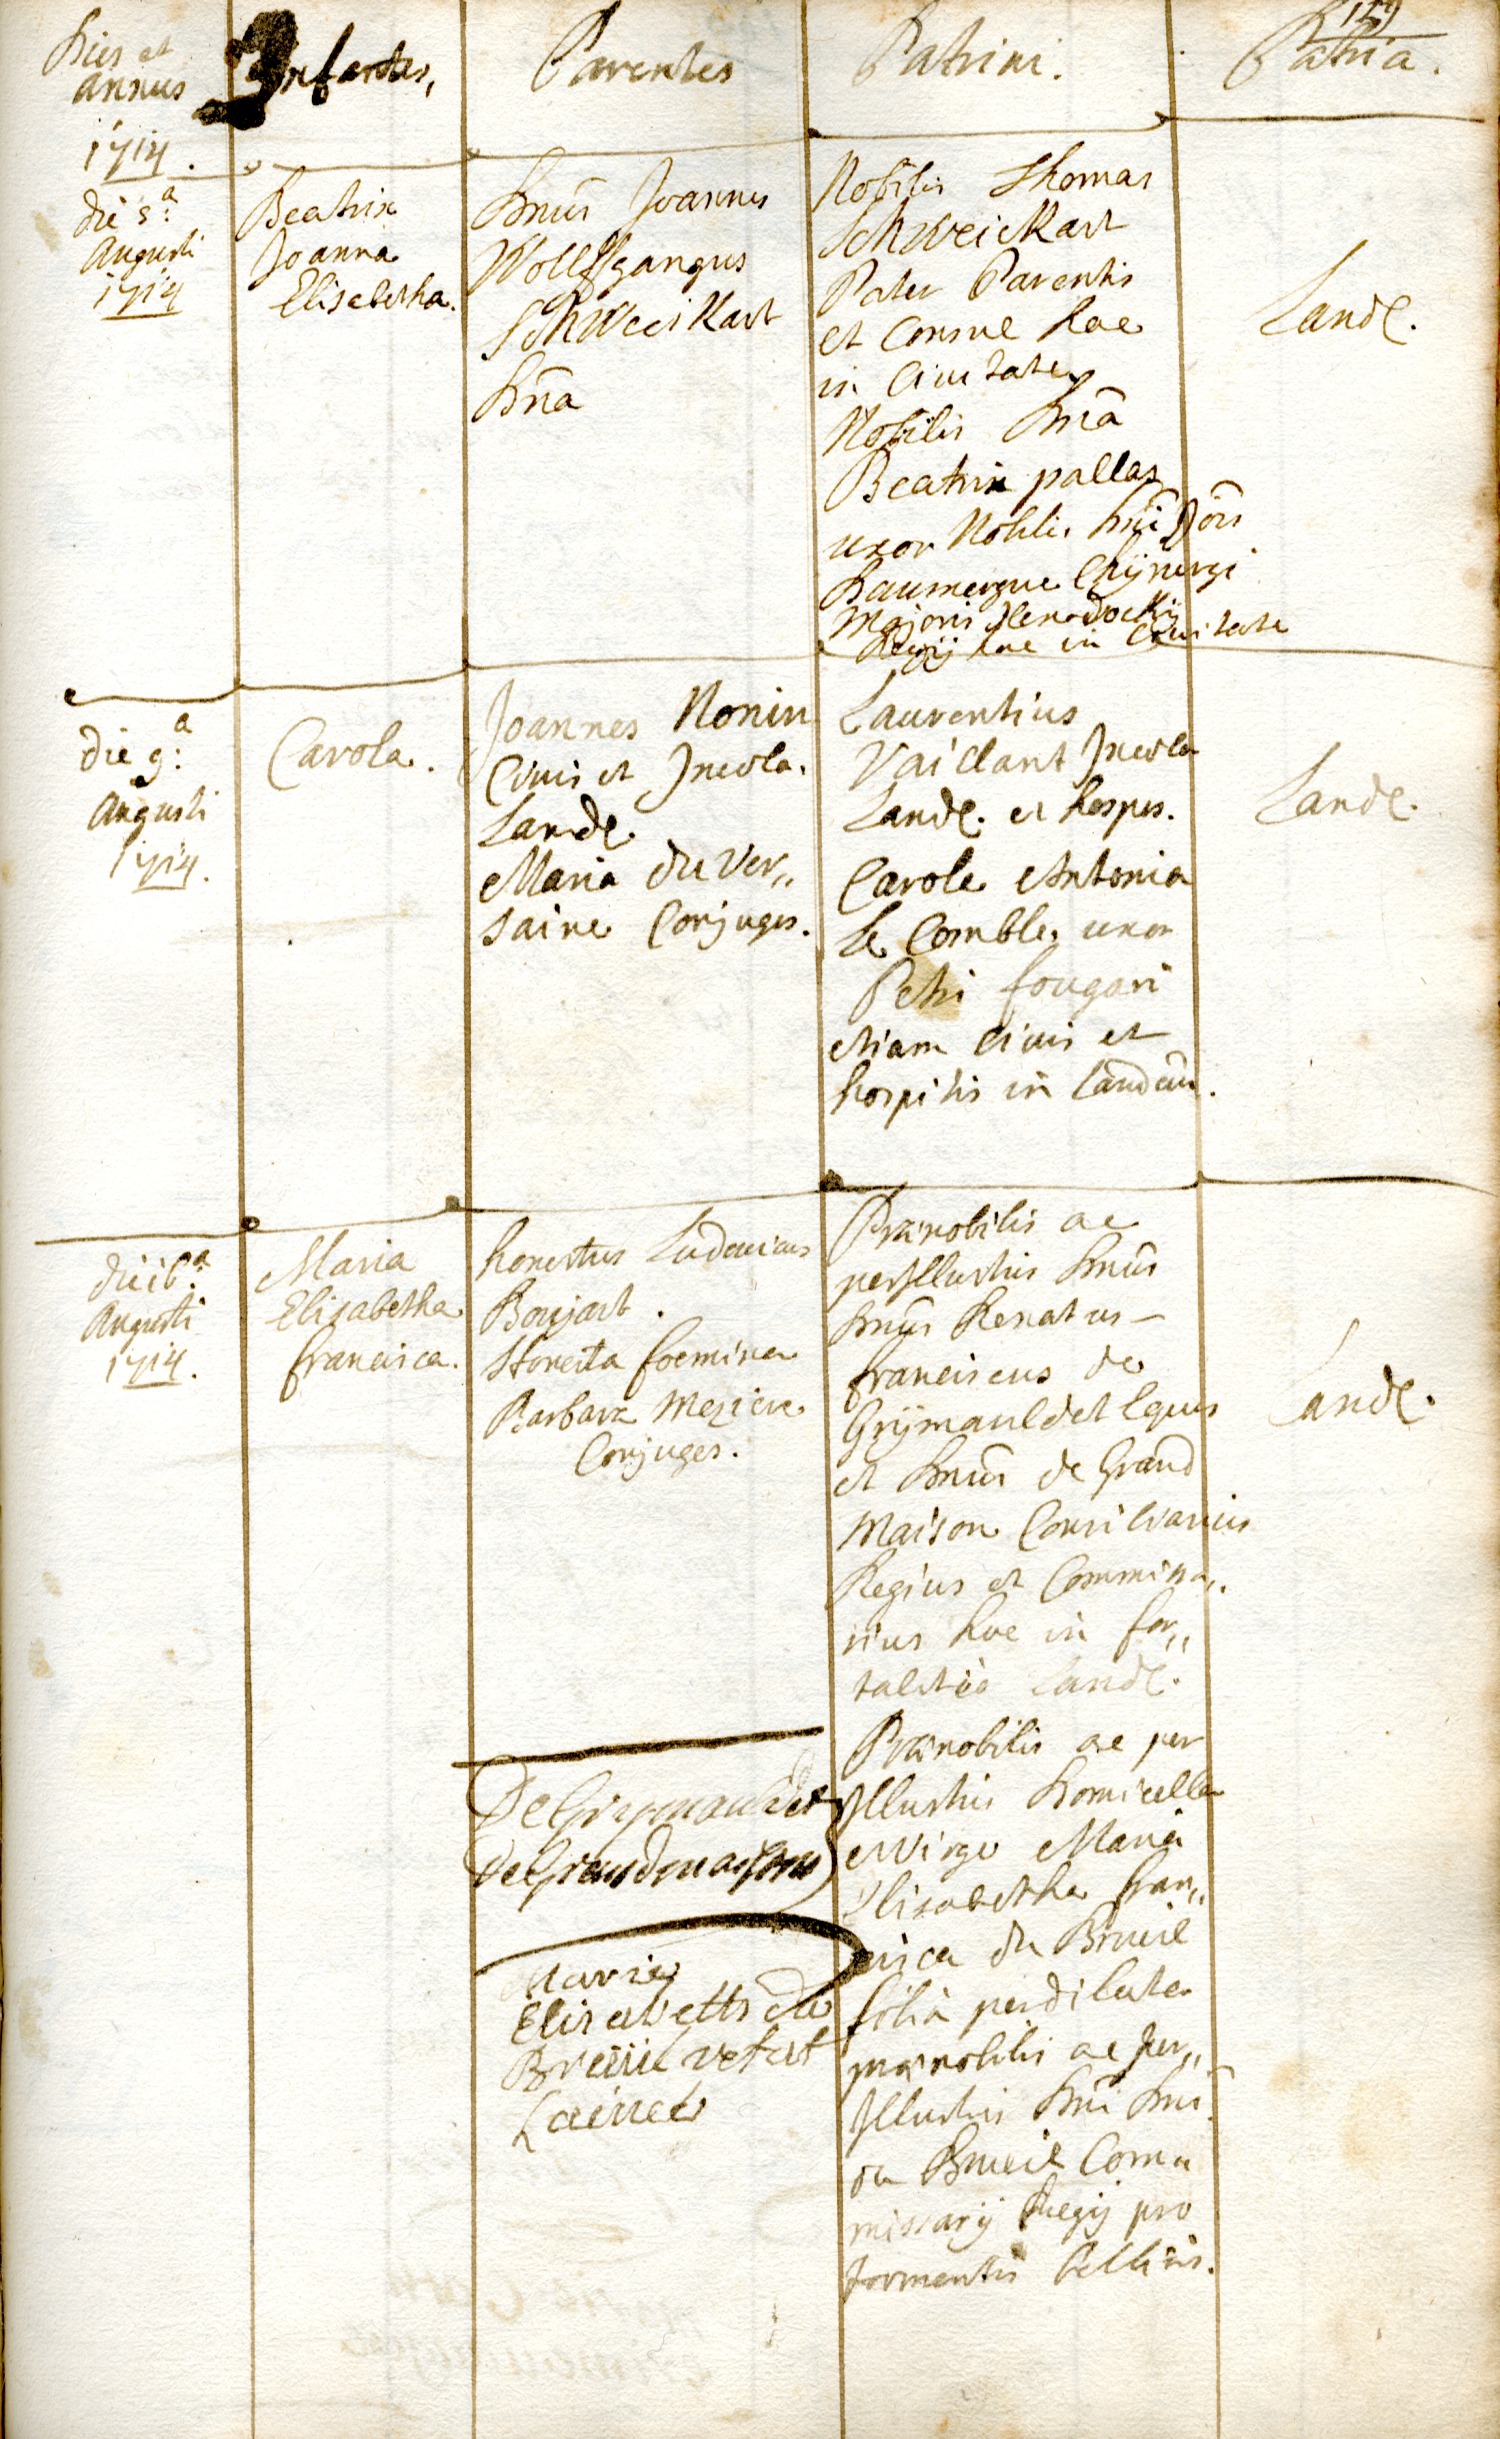 129
Dies et
annus
1714.
Infantes,
Parentes
Patrini.
Patria.
die 5.a
Augusti
1714
Beatrix
Joanna
Elisabetha.
Dnus Joannes
Wolffgangus
Schweickart
Dna
Nobilis Thomas
Schweickart
Pater Parentis
et Consul hac
in Civitate
Nobilis Dna
Beatrix pallas
uxor Nobilis Dni Dois
Daumergue Chyrurgi
Majoris
Regij hac in Civitate
Landæ.
die 9.a
Augusti
1714.
Carola.
Joannes Nonin
Civis et Incola
Landæ
Maria du Ver„
saine Conjuges.
Laurentius
Vaillant Incola
Landæ. et hospes.
Carola Antonia
Le Comble uxor
Petri fougari
etiam Civis et
hospitis in Landau.
Landæ.
die 16.a
Augusti
1714.
Maria
Elisabetha
francisca.
honestus Ludovicus
Boujart.
Honesta foemina
Barbara Meziere
Conjuges.
Prænobilis ac
perillustris Dnus
Dnus Renatus –
franciscus de
Grÿmauldet Eques
et Dnus de Grand
Maison Consiliarius
Regius et Commissa„
rius hac in for„
talitio Landæ.
Prænobilis ac per
Illustris Domicella
et Virgo Maria
Elisabetha fran„
cisca du Brueil
filia perdilecta
prænobilis ac per„
Illustris Dni Dni
du Brueil Com„
missarij Regij pro
tormentis bellicis.
Landæ.
De Grymauldet
de Grandmaison
Marie
Elisabetth du
Breüil